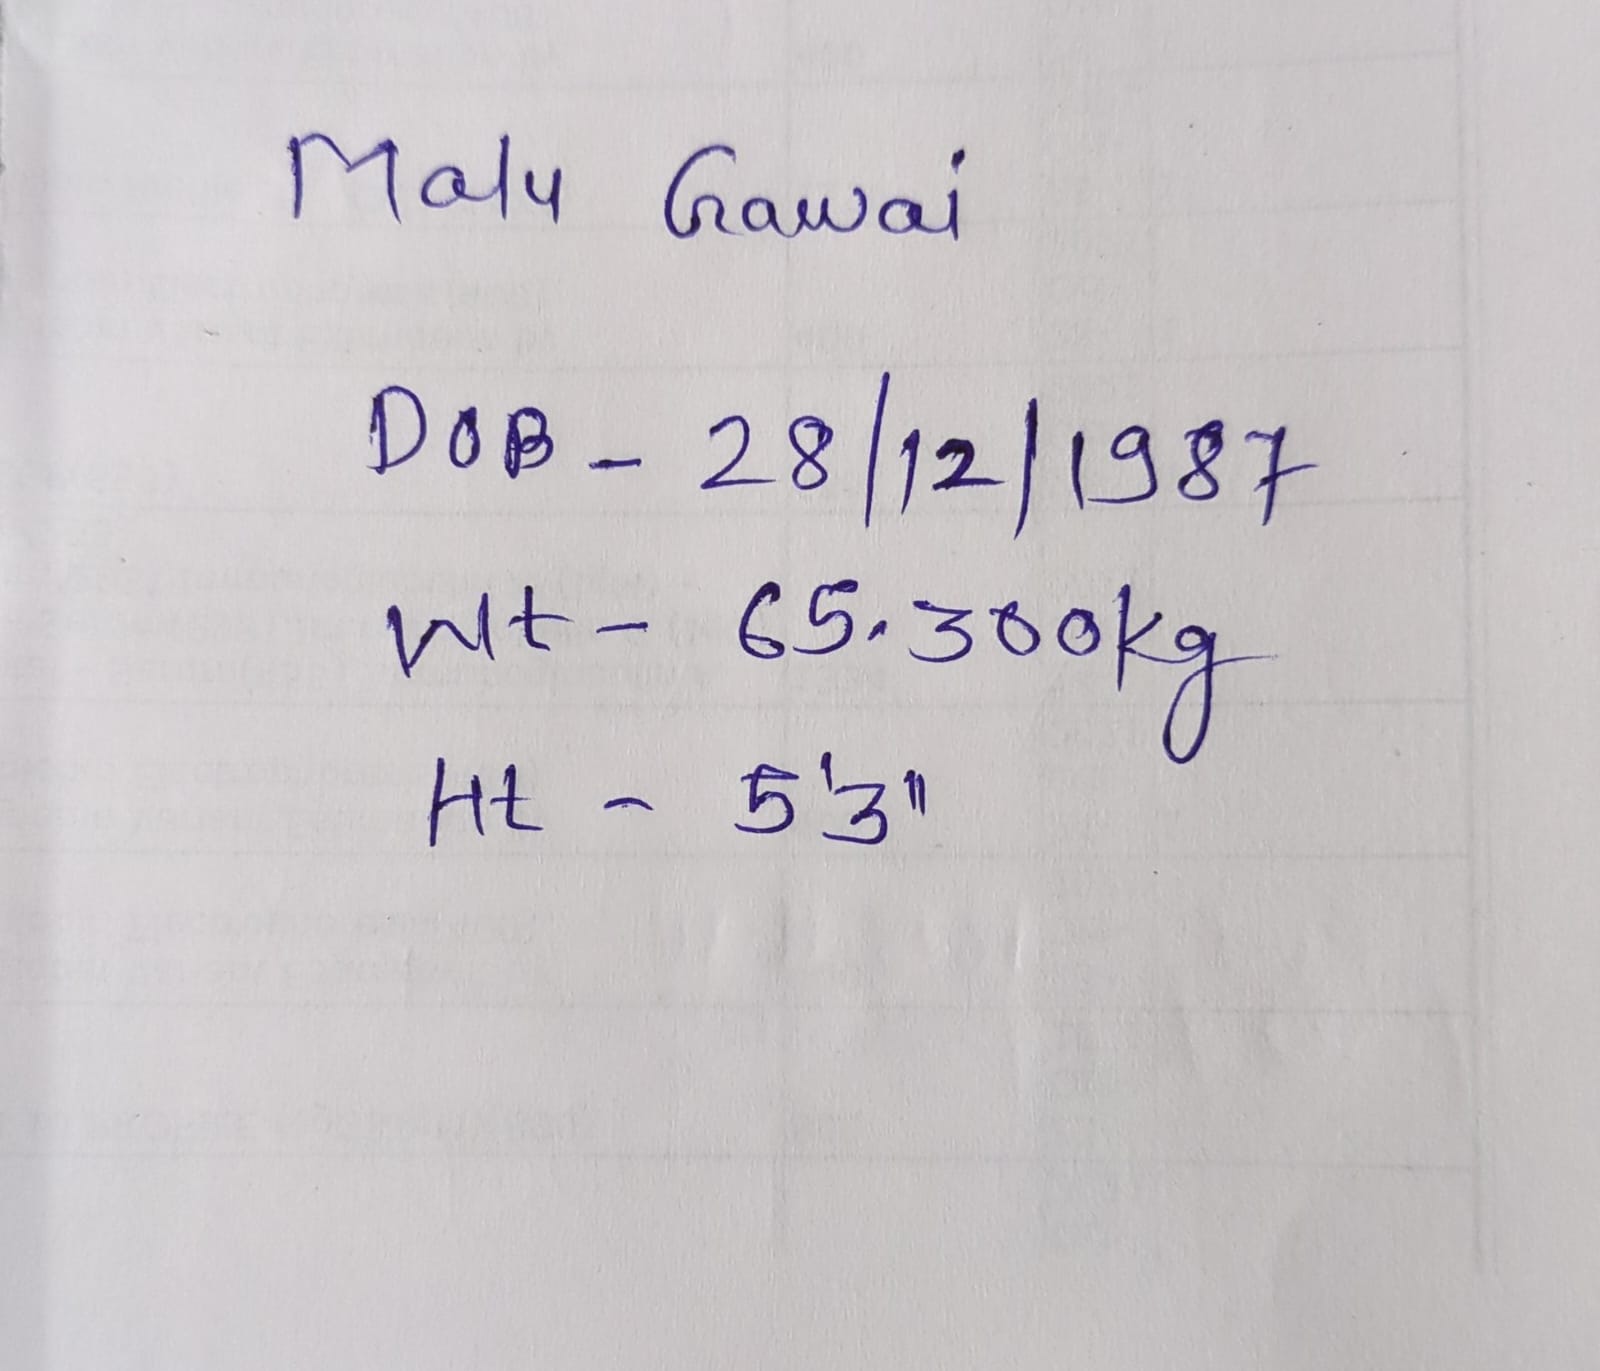 Malu Gawai
DOB - 28/12/1987
Wt - 65.300kg
Ht - 5'3"